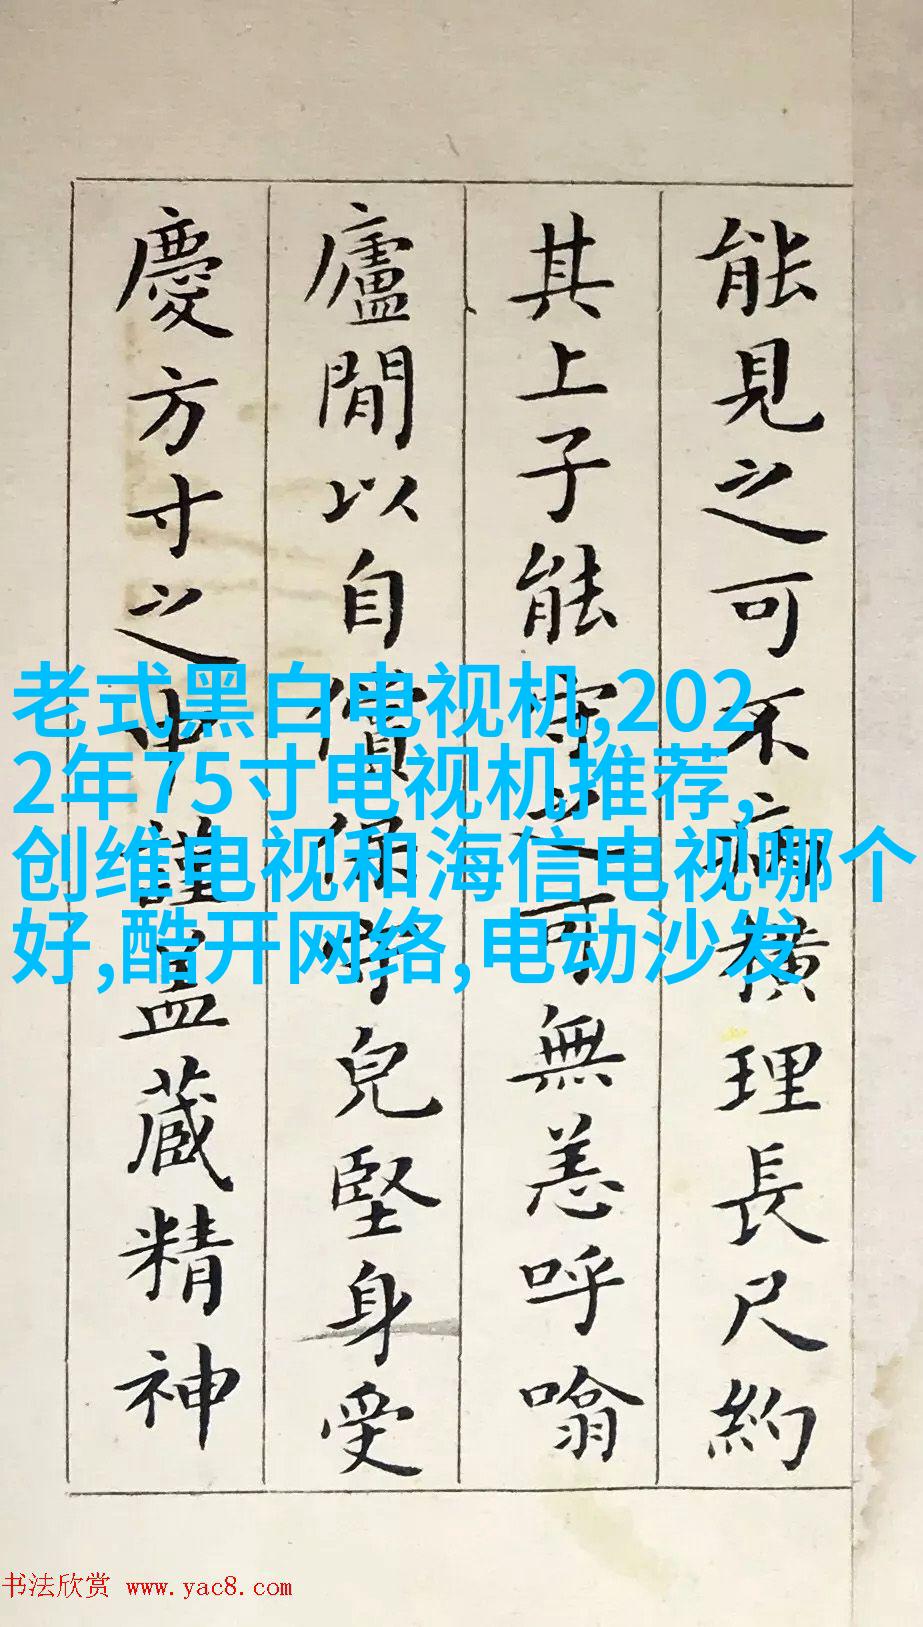 能見之可不病橫理長尺約
其上子能守之可無恙呼噏
廬閒以自償保守兒堅身受
慶方寸之中謹蓋藏精神
老式黑白电视机,202
2年75寸电视机推荐,
创维电视和海信电视哪个
好,酷开网络,电动沙发
书法欣赏 www.yac8.com